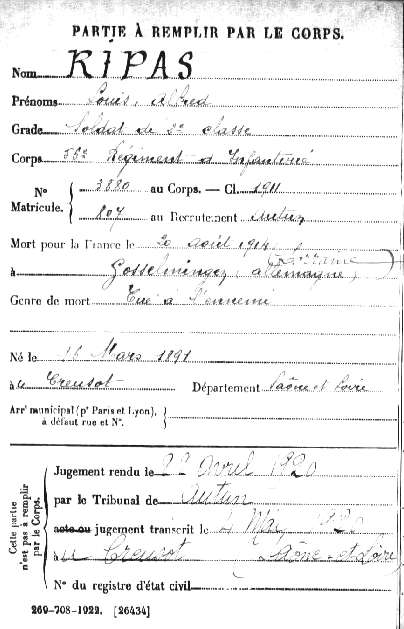 PARTIE À REMPLIR PAR LE CORPS.
Nom RIPAS
Prénoms Louis, Alfred
Grade Soldat de 2e classe
Corps Régiment d'Infanterie
N° Matricule. { 3880 au Corps. — Cl. 1911
807 au Recrutement Autun
Mort pour la France le 20 août 1914
à Gosselmingen, allemagne (Lorraine)
Genre de mort Tué à l'ennemi
Né le 16 Mars 1891
au Creusot Département Saône et Loire
Arrt municipal (pr Paris et Lyon),
à défaut rue et N°.
Cette partie n'est pas à remplir par le Corps.
Jugement rendu le Avril 1920
par le Tribunal de Autun
acte ou jugement transcrit le 4 Mai 1920
au Creusot Saône-et-Loire
N° du registre d'état civil
269-708-1922. [26434]